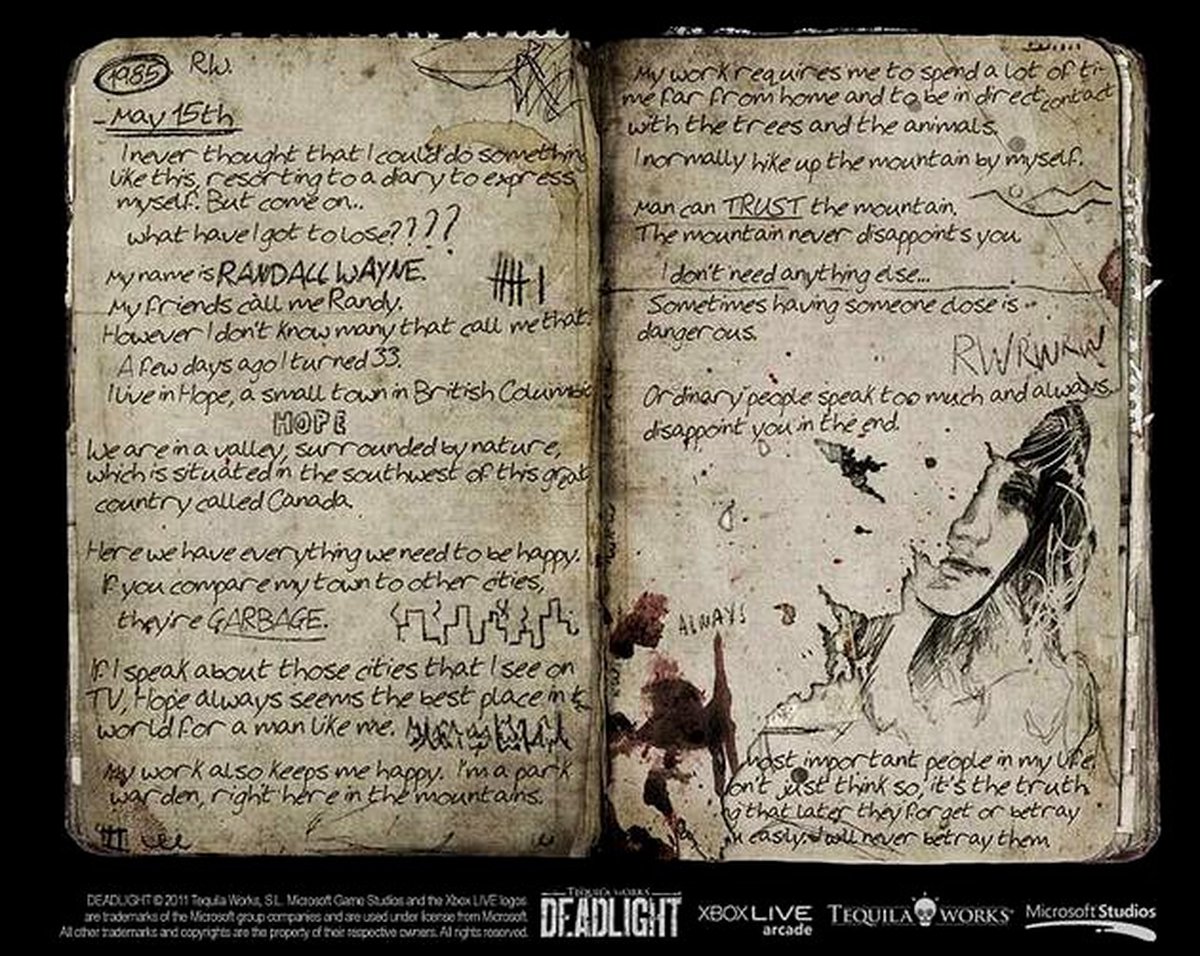 1985 R.W.
- May 15th
I never thought that I could do something
like this, resorting to a diary to express
myself. But come on..
what have I got to lose????
My name is RANDALL WAYNE.
My friends call me Randy.
However I don't know many that call me that.
A few days ago I turned 33.
I live in Hope, a small town in British Columbia
HOPE
We are in a valley, surrounded by nature,
which is situated in the southwest of this great
country called Canada.
Here we have everything we need to be happy.
If you compare my town to other cities,
they're GARBAGE.
If I speak about those cities that I see on
TV, Hope always seems the best place in t
world for a man like me.
My work also keeps me happy. I'm a park
warden, right here in the mountains.
My work requires me to spend a lot of ti-
me far from home and to be in direct contact
with the trees and the animals.
I normally hike up the mountain by myself.
Man can TRUST the mountain.
The mountain never disappoints you
I don't need anything else...
Sometimes having someone close is
dangerous.
RWRWRW
Ordinary people speak too much and always
disappoint you in the end.
ALWAYS
most important people in my life.
on't just think so, it's the truth
g that later they forget or betray
easily. I will never betray them
DEADLIGHT © 2011 Tequila Works, S.L. Microsoft Game Studios and the Xbox LIVE logos
are trademarks of the Microsoft group companies and are used under license from Microsoft.
All other trademarks and copyrights are the property of their respective owners. All rights reserved.
TEQUILA WORKS
DEADLIGHT
XBOX LIVE
arcade
TEQUILA WORKS
Microsoft Studios